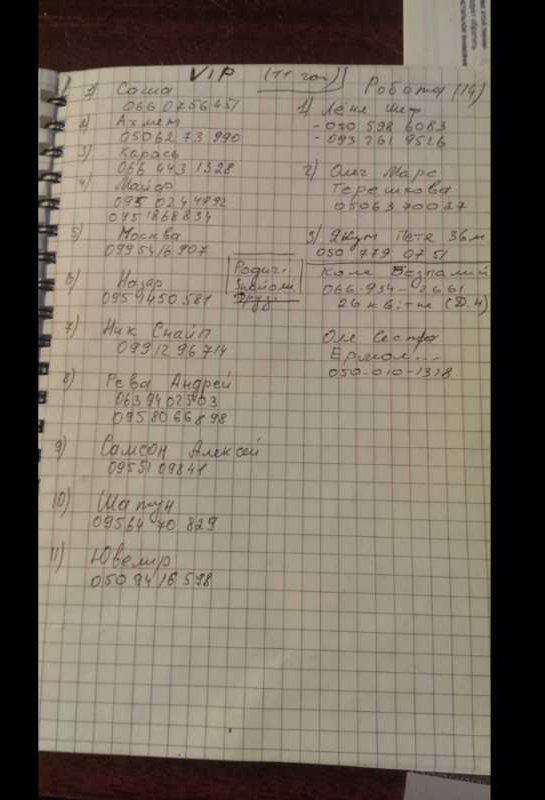 VIP (11 год)
1) Саша
066 0756451
2) Ахмет
05062 73 990
3) Карась
066 443 1328
4) Майор
095 0244792
0951868834
5) Москва
0995416907
6) Назар
0959450581
7) Ник Снайп
0991296714
8) Рева Андрей
0639402503
0958066898
9) Самсон Алексей
0955109841
10) Шатун
09564 70 829
11) Ювелир
050 9416 598
Родич.
Знайом.
Друз.
Робота (14)
1) Лёне шеф
- 050 598 6083
- 093 761 9526
2) Олег Марс
Терешкова
05063 70027
3) Якут Петя 36м
050 779 07 51
Коля Безпалий
066-934-2661
26 квітня (Д.Ч)
Оля Сестра
Ермол...
050-010-1328